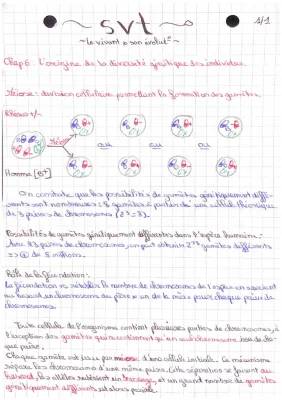 svt 1/1
~ Le vivant & son évolut° ~
Chap 6 : L'origine de la diversité génétique des individus.
Méiose : division cellulaire permettant la formation des gamètes.
ou ou ou
On constate que les possibilités de gamètes génétiquement diffé-
rents sont nombreuses : 8 gamètes à partir de une cellule théorique
de 3 paires de chromosomes (2³=8).
Possibilités de gamètes génétiquement différents dans l'espèce humaine :
Avec 23 paires de chromosomes, on peut obtenir 2²³ gamètes différents
=> de 8 millions.
Rôle de la fécondation :
La fécondation rétablit le nombre de chromosomes de l'espèce en associant
au hasard, un chromosome du père & un de la mère pour chaque paire de
chromosomes.
Toute cellule de l'organisme contient plusieurs paires de chromosomes, à
l'exception des gamètes qui ne contiennent qu'un seul chromosome de cha-
que paire.
Chaque gamète est issu par méiose d'une cellule initiale. Ce mécanisme
sépare les chromosomes d'une même paire. Cette séparation se faisant au
hasard, les allèles subissent un brassage, et un grand nombre de gamètes
génétiquement différents est alors possible.